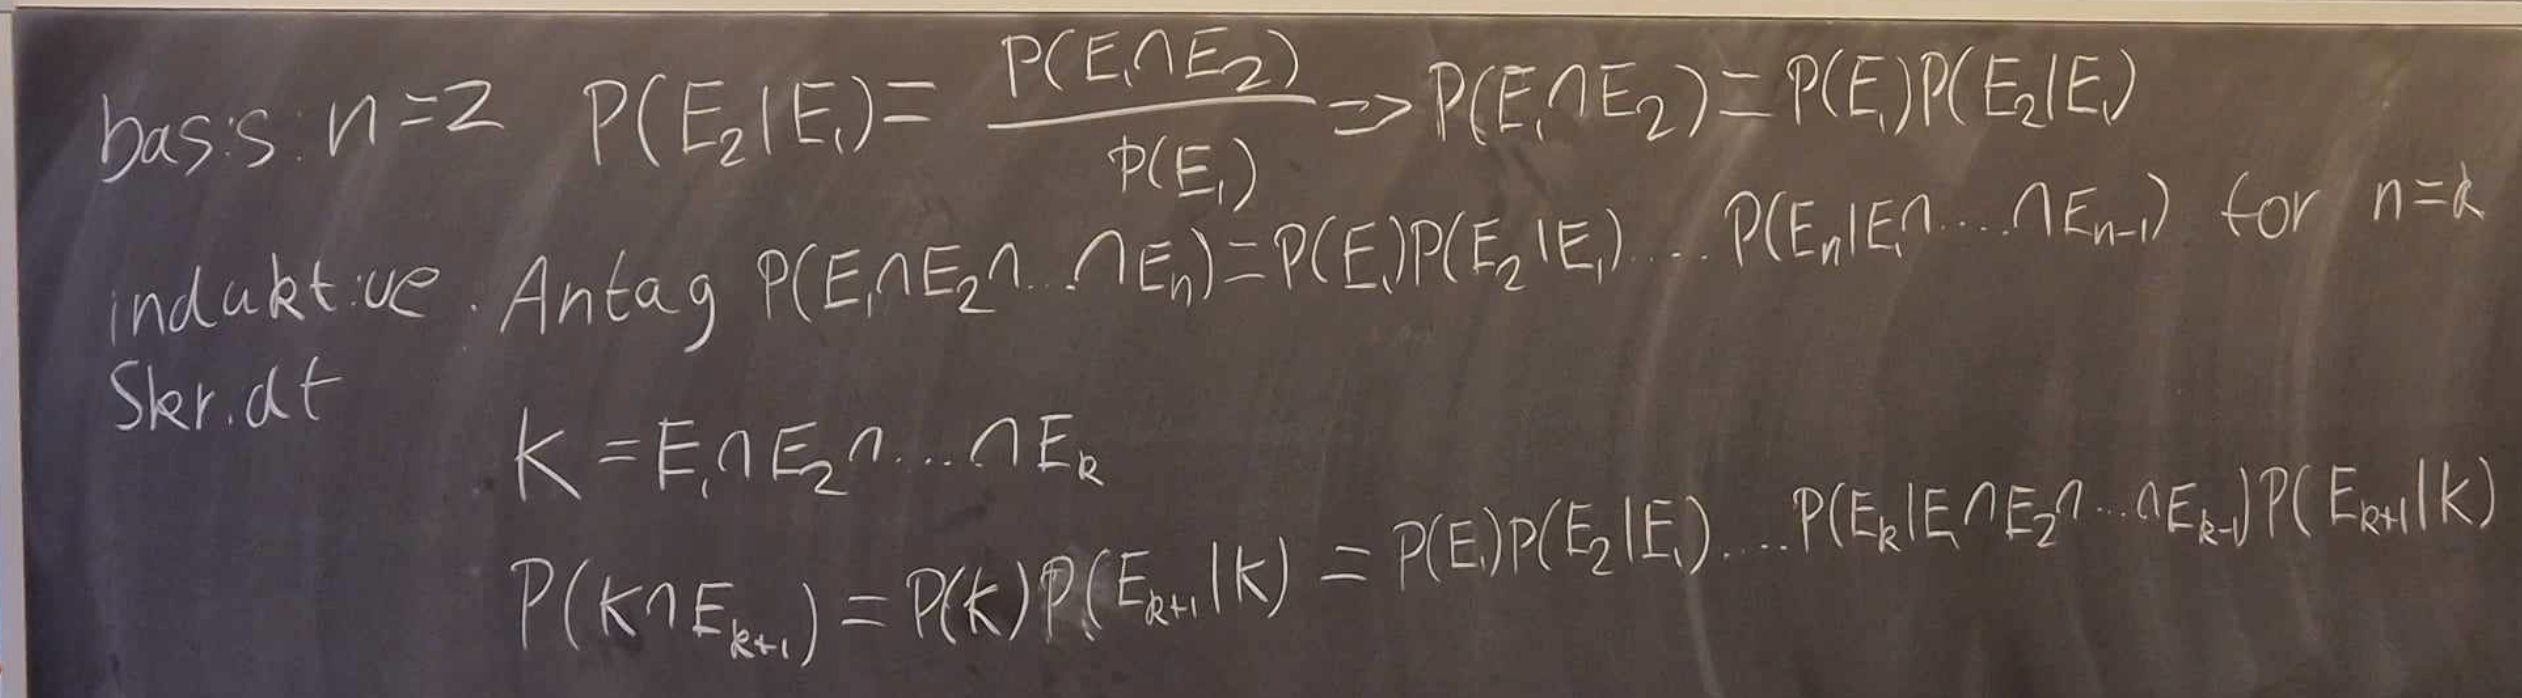 basis: n=2 P(E₂|E₁)= P(E₁∩E₂)/P(E₁) => P(E₁∩E₂)=P(E₁)P(E₂|E₁)
induktive. Antag P(E₁∩E₂∩...∩Eₙ)=P(E₁)P(E₂|E₁)....P(Eₙ|E₁∩....∩Eₙ₋₁) for n=k
Skridt
K=E₁∩E₂∩....∩Eₖ
P(K∩Eₖ₊₁)=P(K)P(Eₖ₊₁|K)=P(E₁)P(E₂|E₁)....P(Eₖ|E₁∩E₂∩...∩Eₖ₋₁)P(Eₖ₊₁|K)